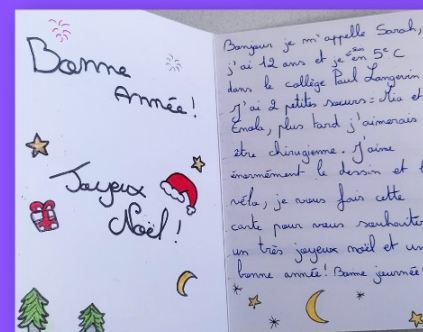 Bonne
Année!
Joyeux
Noël!
Bonjour je m'appelle Sarah,
j'ai 12 ans et je suis en 5e C
dans le collège Paul Langevin
J'ai 2 petites sœurs: Mia et
Enola, plus tard j'aimerais
être chirugienne. J'aime
énormément le dessin et l
vélo, je vous fais cette
carte pour vous souhaiter
un très joyeux noël et un
bonne année! Bonne journée!